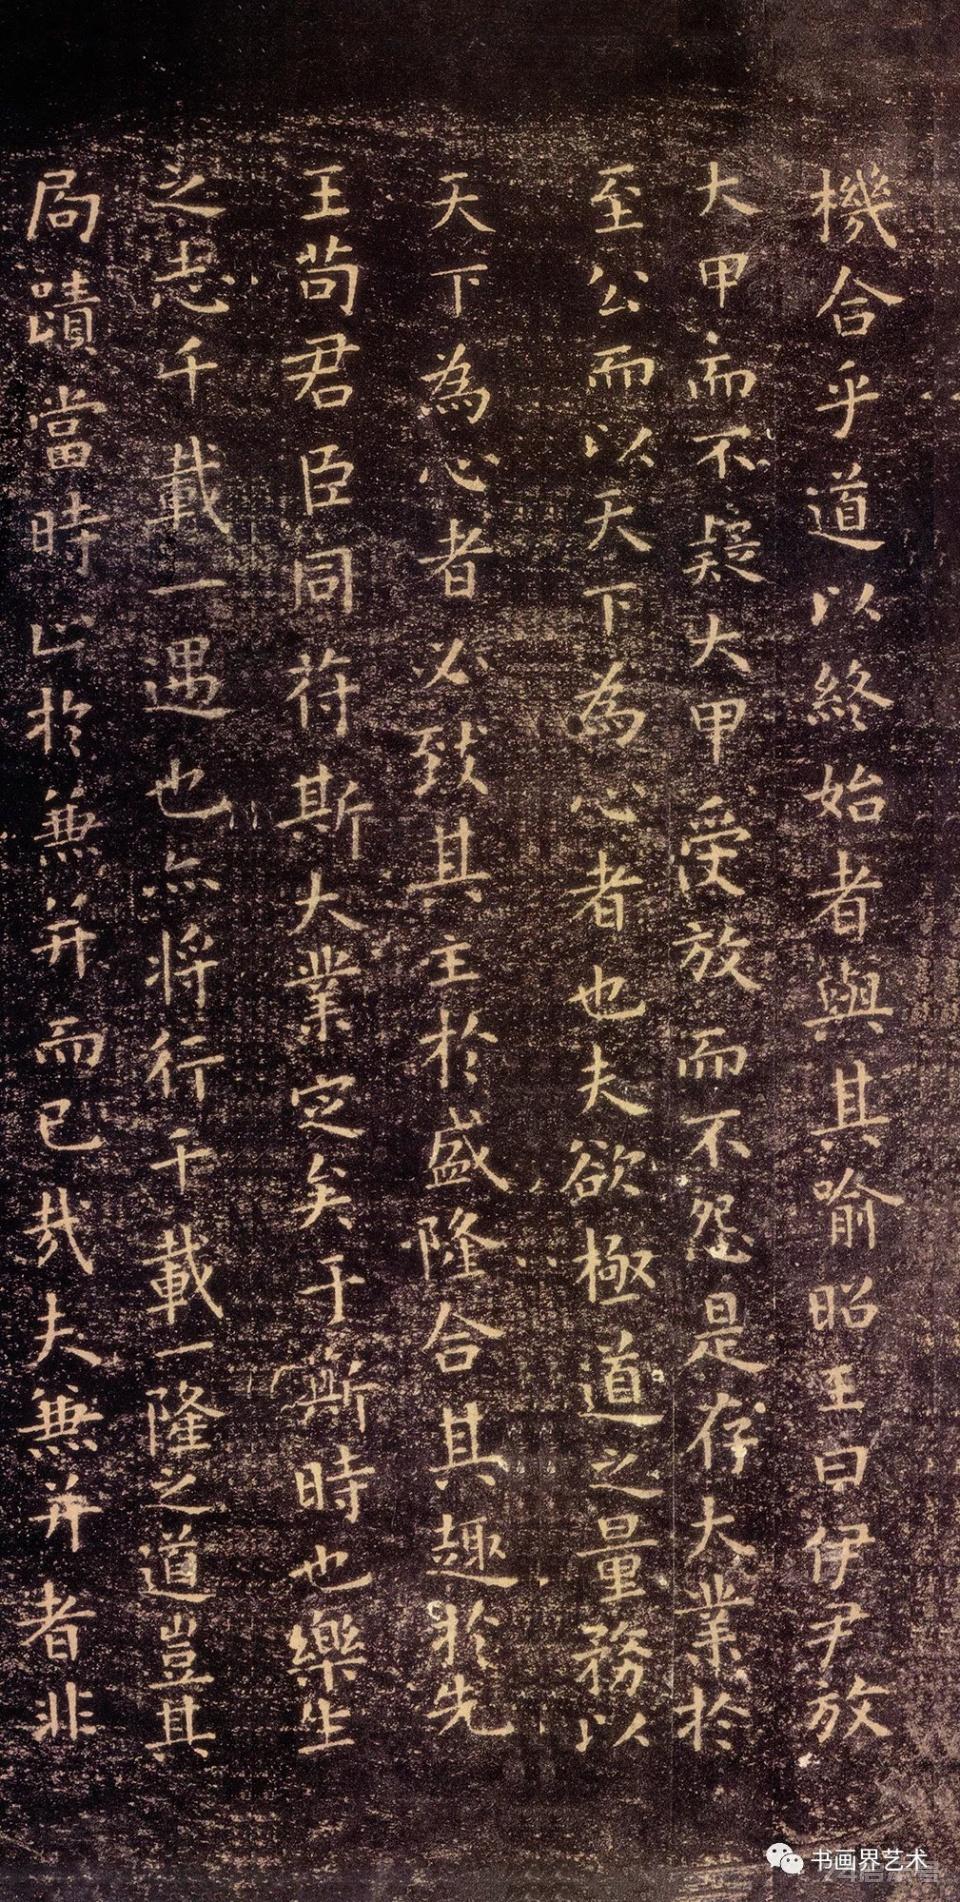 機合乎道以終始者與其喻昭王曰伊尹放
大甲而不疑大甲受放而不怨是存大業於
至公而以天下為心者也夫欲極道之量務以
天下為心者必致其主於盛隆合其趣於先
王苟君臣同符斯大業定矣于斯時也樂生
之志千載一遇也亦將行千載一隆之道豈其
局蹟當時止於兼并而已哉夫兼并者非
书画界艺术